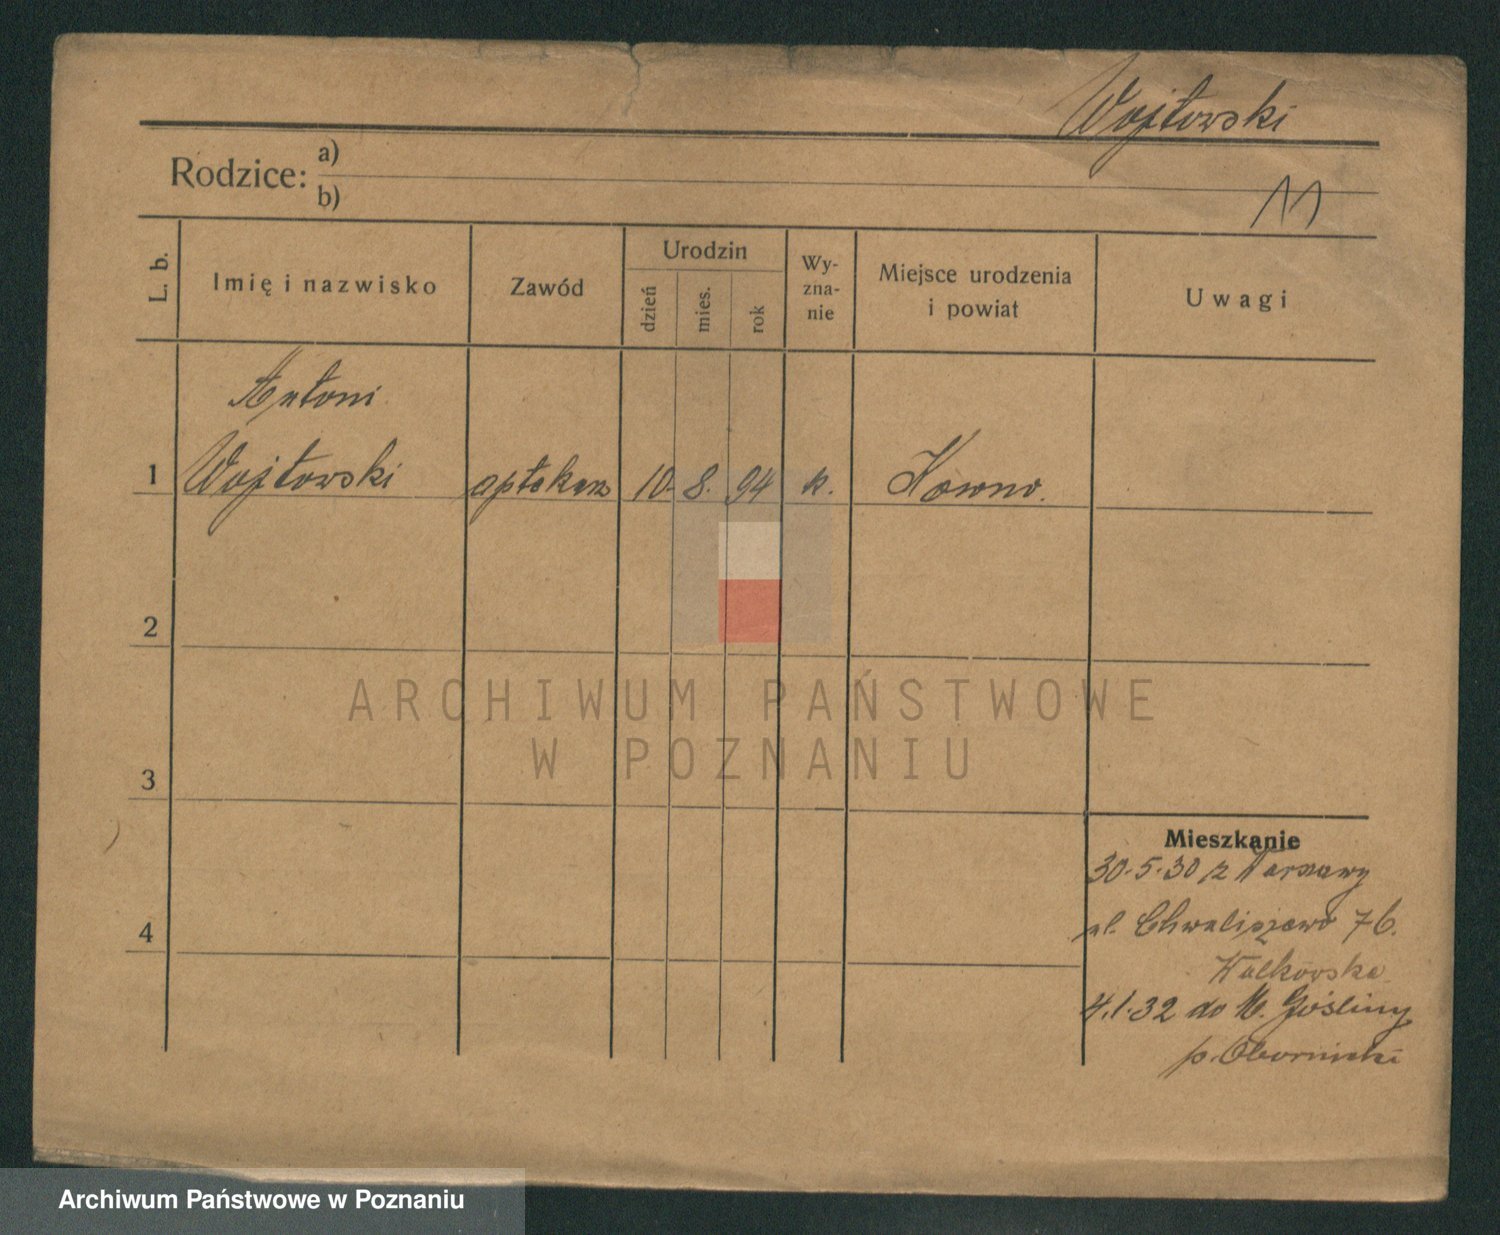 Wojtowski
Rodzice: a)
b)
11
L. b.
Imię i nazwisko
Zawód
Urodzin
dzień
mies.
rok
Wy-
zna-
nie
Miejsce urodzenia
i powiat
Uwagi
Antoni
1 Wojtowski aptekarz 10. 8. 94 k. Kowno.
2
3
4
ARCHIWUM PAŃSTWOWE
W POZNANIU
Mieszkanie
30.5.30 z
ul. Chwaliszewo 76.
4.1.32 do M. Gośliny
p. Obornicki
Archiwum Państwowe w Poznaniu